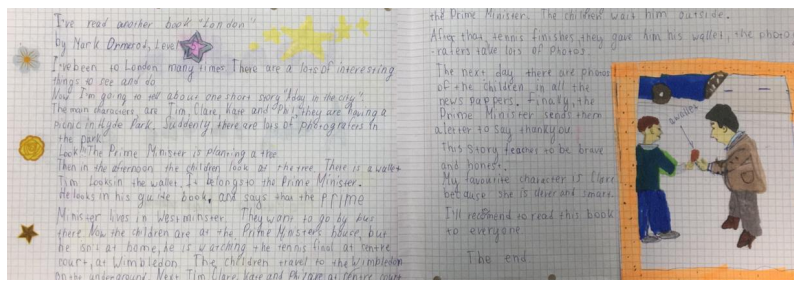 I've read another book "London"
by Mark Ormerod, Level
I've been to London many times. There are a lots of interesting
things to see and do
Now I'm going to tell about one short story "A day in the city".
The main characters are Tim, Clare, Kate and Phil, they are having a
picnic in Hyde Park. Suddenly, there are lots of photograters in
the park.
Look! The Prime Minister is planting a tree
Then in the afternoons the children look at the tree. There is a wallet
Tim looks in the wallet. It belongs to the Prime Minister.
He looks in his guide book, and says that the Prime
Minister lives in Westminster. They want to go by bus
there Now the children are at the Prime Minister's house, but
he isn't at home, he is watching the tennis final at centre
court, at Wimbledon. The children travel to the Wimbledon
on the underground. Next Tim, Clare, Kate and Phil are at centre court
the Prime Minister. The children wait him outside.
After that, tennis finishes, they gave him his wallet, the photog
raters take lots of photos.
The next day there are photos
of the children in all the
news pappers. Finally, the
Prime Minister sends them
a letter to say thank you.
This story teaches to be brave
and honest.
My favourite character is Clare
because she is clever and smart.
I'll recomend to read this book
to everyone.
The end.
a wallet